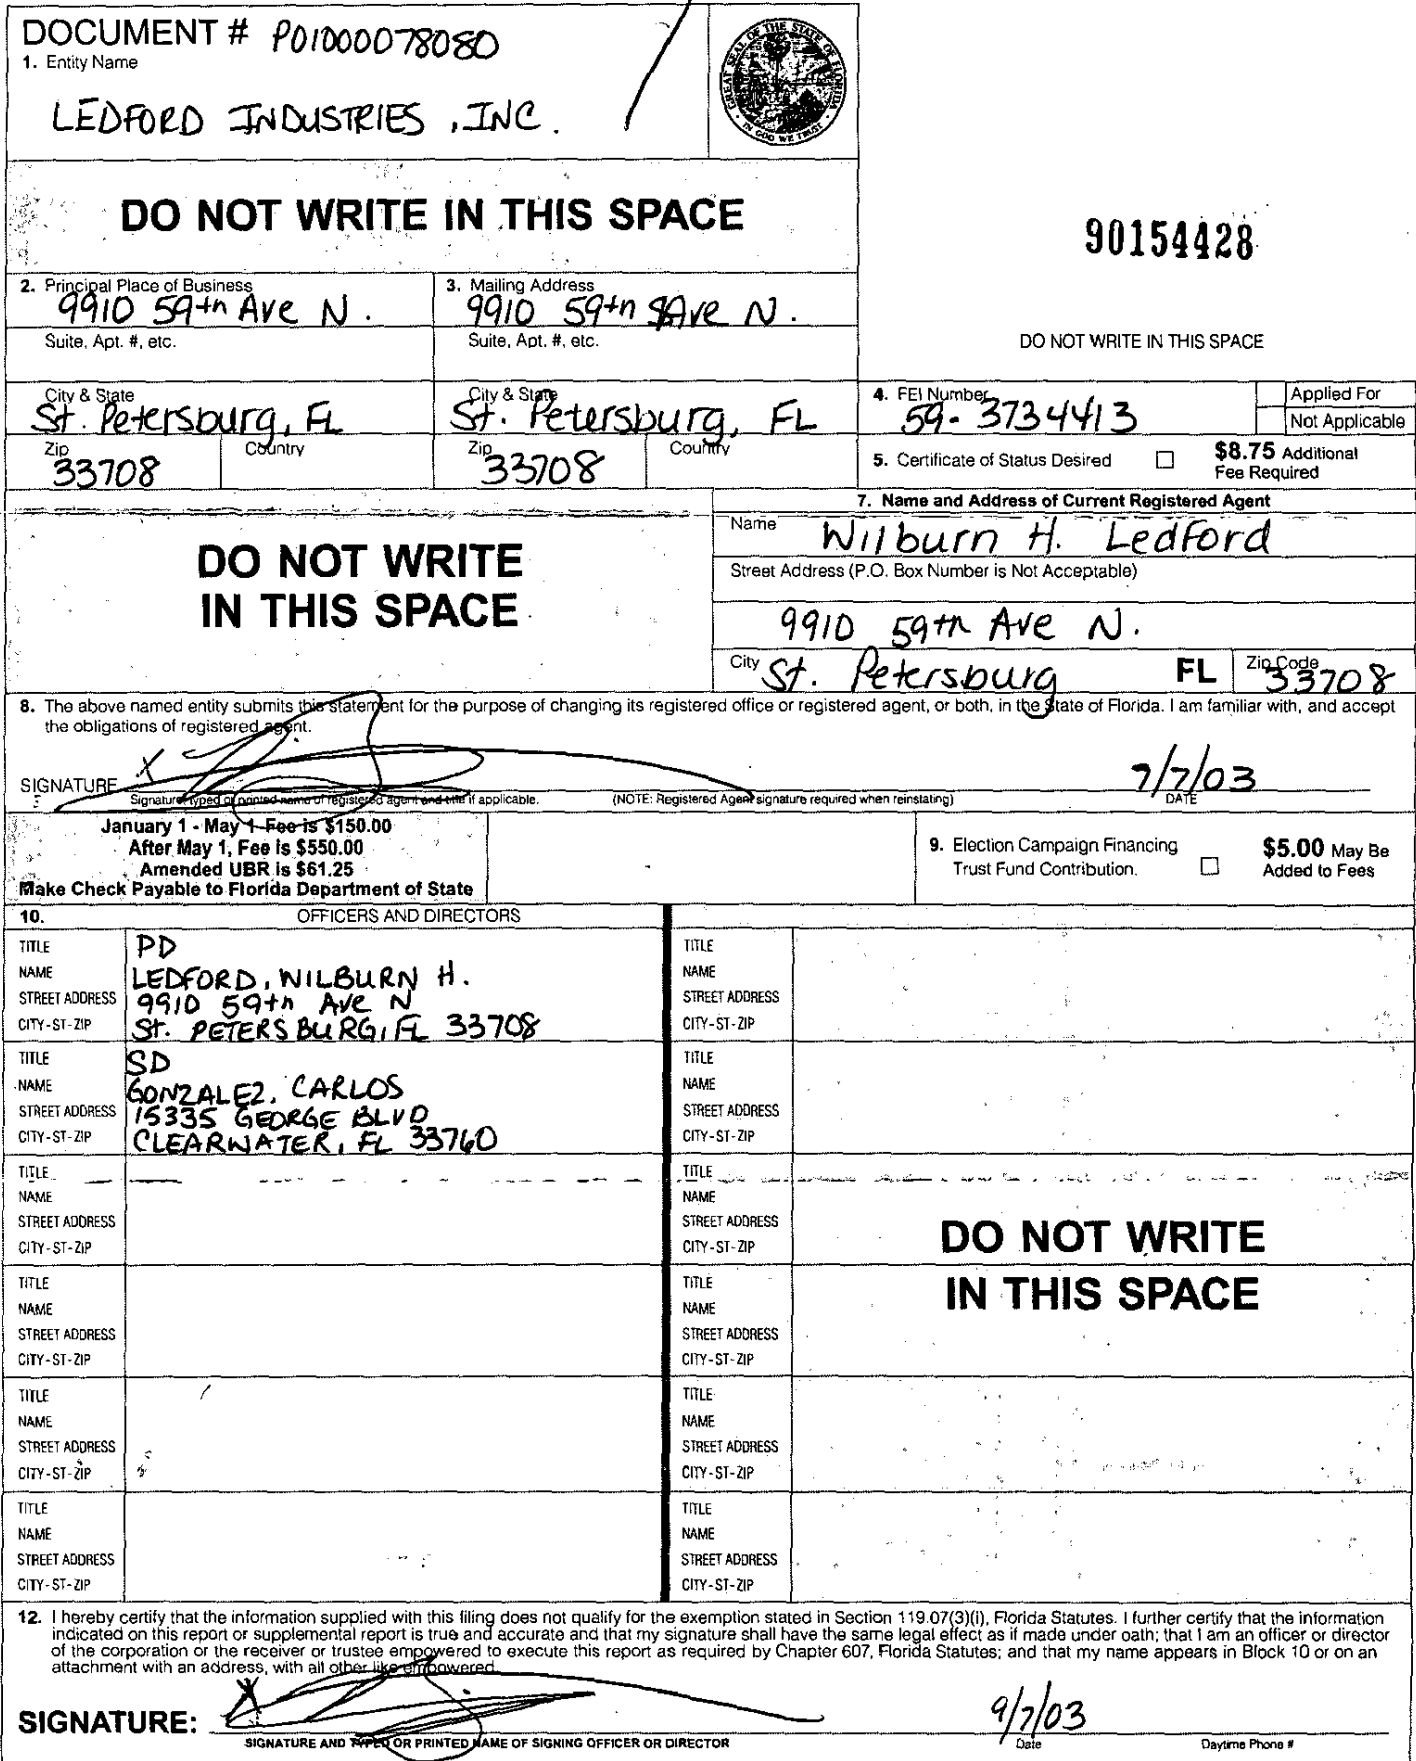 DOCUMENT # P01000078080
1. Entity Name
LEDFORD INDUSTRIES, INC.
GREAT SEAL OF THE STATE OF FLORIDA
IN GOD WE TRUST
DO NOT WRITE IN THIS SPACE
90154428
DO NOT WRITE IN THIS SPACE
2. Principal Place of Business
9910 59th Ave N.
Suite, Apt. #, etc.
City & State
St. Petersburg, FL
Zip Country
33708
3. Mailing Address
9910 59th Ave N.
Suite, Apt. #, etc.
City & State
St. Petersburg, FL
Zip Country
33708
4. FEI Number
59-3734413
Applied For
Not Applicable
5. Certificate of Status Desired $8.75 Additional
Fee Required
DO NOT WRITE
IN THIS SPACE
7. Name and Address of Current Registered Agent
Name Wilburn H. Ledford
Street Address (P.O. Box Number is Not Acceptable)
9910 59th Ave N.
City St. Petersburg FL Zip Code 33708
8. The above named entity submits this statement for the purpose of changing its registered office or registered agent, or both, in the State of Florida. I am familiar with, and accept
the obligations of registered agent.
SIGNATURE x 7/7/03
Signature, typed or printed name of registered agent and title if applicable. (NOTE: Registered Agent signature required when reinstating) DATE
January 1 - May 1 Fee is $150.00
After May 1, Fee is $550.00
Amended UBR is $61.25
Make Check Payable to Florida Department of State
9. Election Campaign Financing $5.00 May Be
Trust Fund Contribution. Added to Fees
10. OFFICERS AND DIRECTORS
TITLE PD
NAME LEDFORD, WILBURN H.
STREET ADDRESS 9910 59th Ave N
CITY-ST-ZIP St. PETERSBURG, FL 33708
TITLE SD
NAME GONZALEZ, CARLOS
STREET ADDRESS 15335 GEORGE BLVD
CITY-ST-ZIP CLEARWATER, FL 33760
TITLE
NAME
STREET ADDRESS
CITY-ST-ZIP
TITLE
NAME
STREET ADDRESS
CITY-ST-ZIP
TITLE
NAME
STREET ADDRESS
CITY-ST-ZIP
TITLE
NAME
STREET ADDRESS
CITY-ST-ZIP
TITLE
NAME
STREET ADDRESS
CITY-ST-ZIP
TITLE
NAME
STREET ADDRESS
CITY-ST-ZIP
TITLE
NAME
STREET ADDRESS
CITY-ST-ZIP
TITLE
NAME
STREET ADDRESS
CITY-ST-ZIP
TITLE
NAME
STREET ADDRESS
CITY-ST-ZIP
TITLE
NAME
STREET ADDRESS
CITY-ST-ZIP
DO NOT WRITE
IN THIS SPACE
12. I hereby certify that the information supplied with this filing does not qualify for the exemption stated in Section 119.07(3)(i), Florida Statutes. I further certify that the information
indicated on this report or supplemental report is true and accurate and that my signature shall have the same legal effect as if made under oath; that I am an officer or director
of the corporation or the receiver or trustee empowered to execute this report as required by Chapter 607, Florida Statutes; and that my name appears in Block 10 or on an
attachment with an address, with all other like empowered.
SIGNATURE: x 9/7/03
SIGNATURE AND TYPED OR PRINTED NAME OF SIGNING OFFICER OR DIRECTOR Date Daytime Phone #